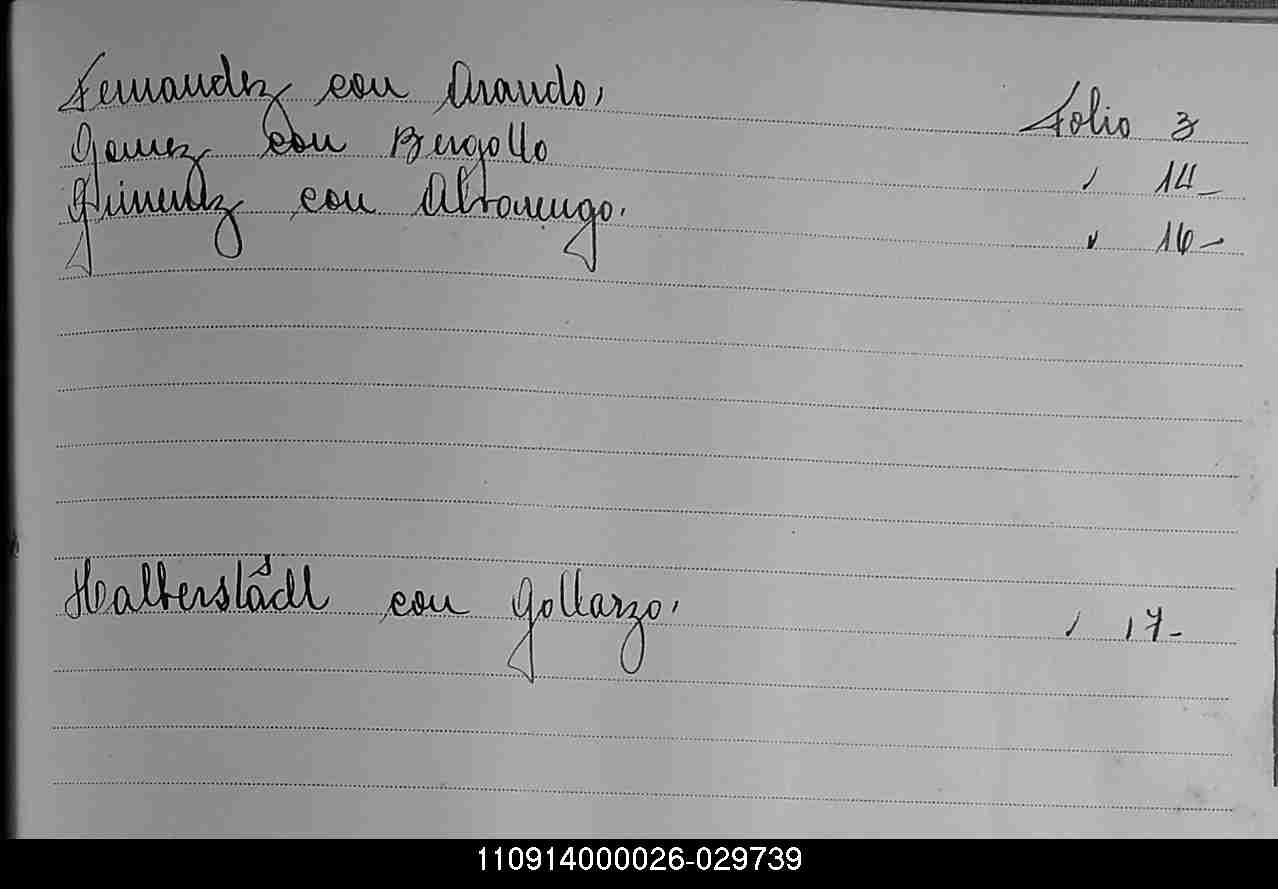 Fernandez con Arando, Folio 3
Gomez con Bergallo " 14-
Gimenez con Altomengo. " 16-
Halberstadt con Gollarzo, " 17-
110914000026-029739